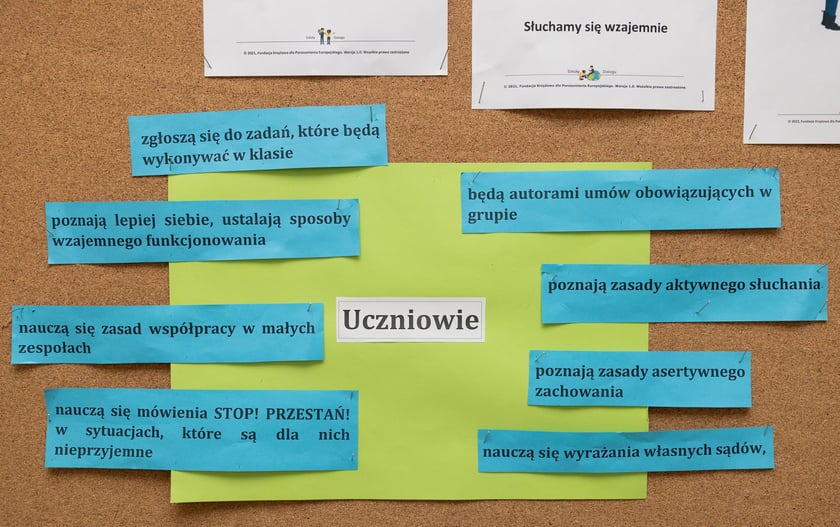 Szkoły Dialogu
© 2021, Fundacja Krzyżowa dla Porozumienia Europejskiego. Wersja 1.0. Wszelkie prawa zastrzeżone
Słuchamy się wzajemnie
Szkoły Dialogu
© 2021, Fundacja Krzyżowa dla Porozumienia Europejskiego. Wersja 1.0. Wszelkie prawa zastrzeżone
zgłoszą się do zadań, które będą
wykonywać w klasie
poznają lepiej siebie, ustalają sposoby
wzajemnego funkcjonowania
nauczą się zasad współpracy w małych
zespołach
nauczą się mówienia STOP! PRZESTAŃ!
w sytuacjach, które są dla nich
nieprzyjemne
Uczniowie
będą autorami umów obowiązujących w
grupie
poznają zasady aktywnego słuchania
poznają zasady asertywnego
zachowania
nauczą się wyrażania własnych sądów,